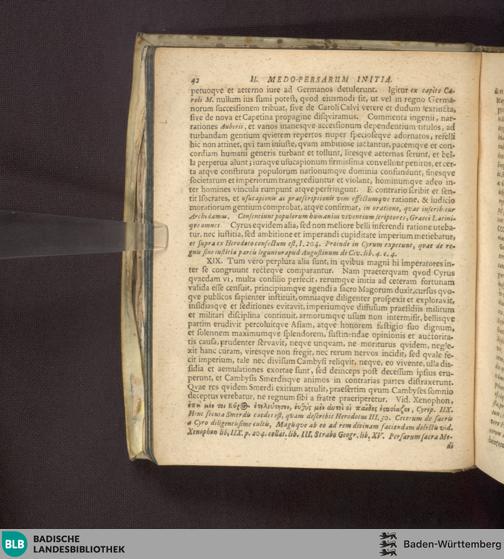 42 II. MEDO-PERSARUM INITIA.
petuoqve et aeterno iure ad Germanos detulerunt. Igitur ex capite Ca-
roli M. nullum ius sumi potest, qvod eiusmodi sit, ut vel in regno Germa-
norum successionem tribuat, sive de Caroli Calvi vetere et dudum exstincta,
sive de nova et Capetina propagine disqviramus. Commenta ingenii, nar-
rationes Auberii, et vanos inanesqve accessionum dependentium titulos, ad
turbandam gentium qvietem repertos nuper specioseqve adornatos, refelli
hic non attinet, qvi tam iniuste, qvam ambitiose iactantur, pacemqve et con-
cordiam humani generis turbant et tollunt, litesqve aeternas serunt, et bel-
la perpetua alunt; iuraqve usucapionum firmissima convellunt penitus, et cer-
ta atqve constituta populorum nationumqve dominia confundunt, finesqve
societatum et imperiorum transgrediuntur et violant, hominumqve adeo in-
ter homines vincula rumpunt atqve perfringunt. E contrario scribit et sen-
tit Isocrates, et usucapionis ac praescriptionis vim effectumqve ratione, & iudicio
moratiorum gentium comprobat, atqve confirmat, in oratione, quae inscribitur
Archidamus. Consentiunt populorum humanius viventium scriptores, Graeci Latini-
qve omnes
Cyrus qvidem alia, sed non meliore belli inferendi ratione uteba-
tur, nec iustitia, sed ambitione et imperandi cupiditate imperium metiebatur,
et supra ex Herodoto confectum est, I. 204. Proinde in Cyrum expetunt, quae de re-
gnis sine iustitia parcis leguntur apud Augustinum de Civ. lib. 4. c. 4.
XIX. Tum vero perplura alia sunt, in qvibus magni hi imperatores in-
ter se congruunt recteqve comparantur. Nam praeterqvam qvod Cyrus
qvaedam vi, multa consilio perfecit, rerumqve initia ad ceteram fortunam
valida esse censuit, principiumqve agendi a sacro Magorum duxit, cursus qvo-
qve publicos sapienter instituit, omniaqve diligenter prospexit et exploravit,
insidiasqve et seditiones evitavit, imperiumqve diffusum praesidiis militum
et militari disciplina continuit, armorumqve usum non intermisit, bellisqve
partim erudivit percoluitqve Asiam, atqve honorem fastigio suo dignum,
et solennem maximumqve splendorem, sustinendae opinionis et auctorita-
tis causa, prudenter servavit, neqve unqvam, ne moriturus qvidem, negle-
xit hanc curam, viresqve non fregit, nec rerum nervos incidit, sed qvale fe-
cit imperium, tale nec divisum Cambysi reliqvit, neqve, eo vivente, ulla dis-
sidia et aemulationes exortae sunt, sed deinceps post decessum ipsius eru-
perunt, et Cambysis Smerdisqve animos in contrarias partes distraxerunt.
Qvae res qvidem Smerdi exitium attulit, praesertim qvum Cambyses somnio
deceptus verebatur, ne regnum sibi a fratre praeriperetur. Vid. Xenophon,
Cyrop. IIX.
Herodotus III, 30. Ceterum de sacris
a Cyro diligentissime cultis, Magisqve ab eo ad rem divinam faciendam delectis vid.
Xenophon lib. IIX. p. 204. collat. lib. III. Strabo Geogr. lib. XV. Persarum sacra Me-
di
BLB BADISCHE
LANDESBIBLIOTHEK
Baden-Württemberg